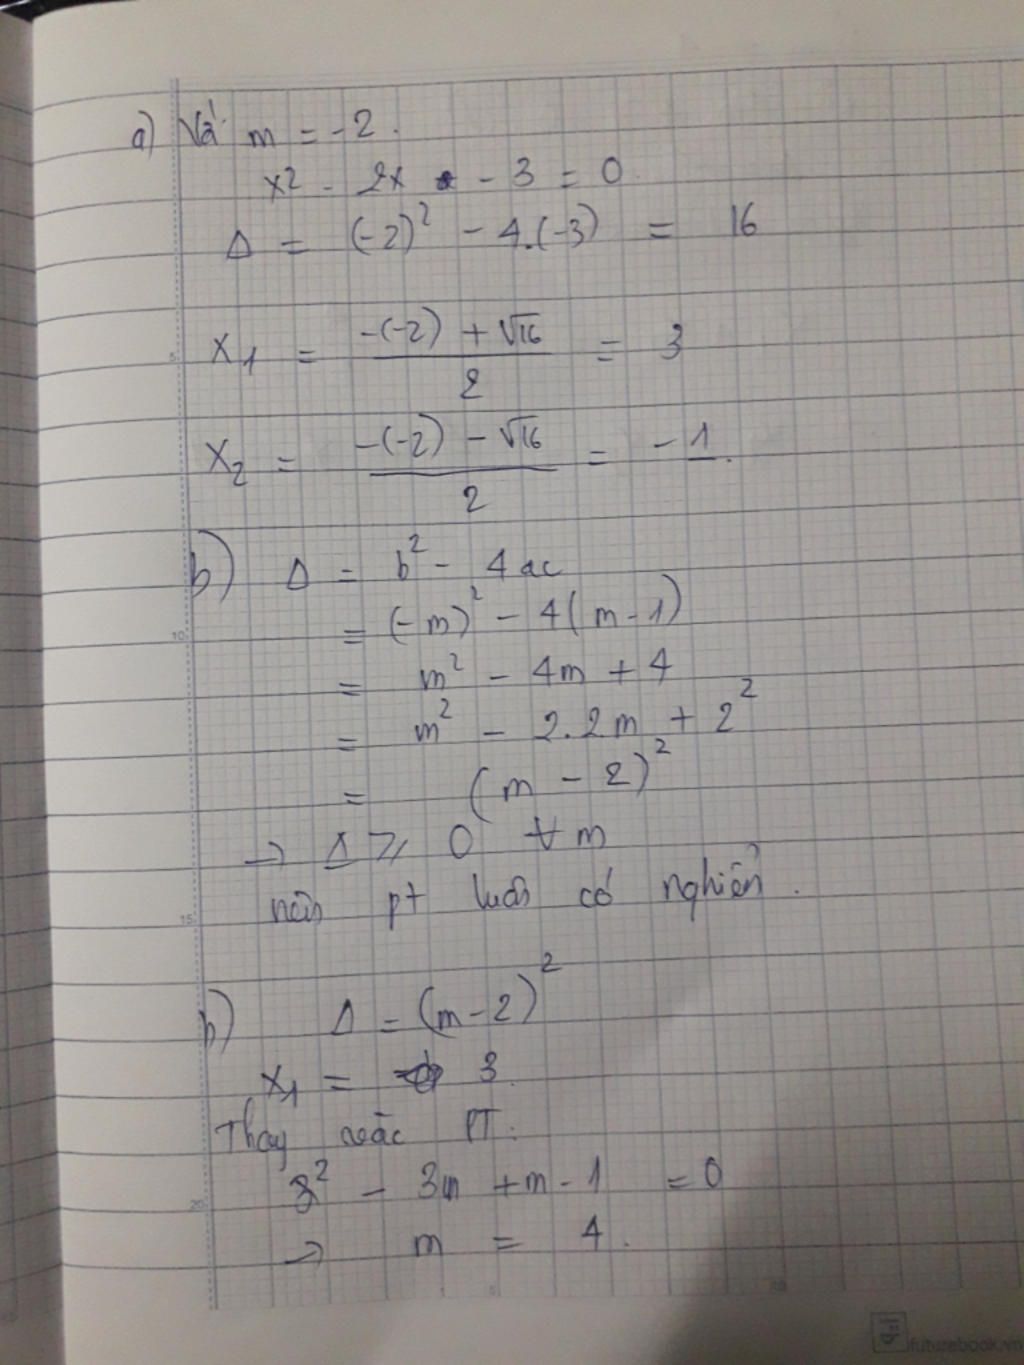 a) Với m = -2.
x² - 2x - 3 = 0
Δ = (-2)² - 4.(-3) = 16
x₁ = (-(-2) + √16)/2 = 3
5
x₂ = (-(-2) - √16)/2 = -1.
b) Δ = b² - 4ac
= (-m)² - 4(m-1)
10
= m² - 4m + 4
= m² - 2.2m + 2²
= (m - 2)²
→ Δ ≥ 0 ∀m
nên pt luôn có nghiệm.
15
b) Δ = (m-2)²
x₁ = 3.
Thay vào PT.
3² - 3m + m - 1 = 0
20
→ m = 4.
futurebook.vn